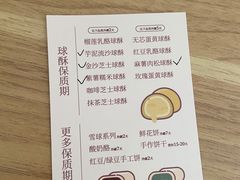 球酥保质期
榴莲乳酪球酥
芋泥流沙球酥
金沙芝士球酥
紫薯糯米球酥
咖啡芝士球酥
抹茶芝士球酥
无芯蛋黄球酥
红豆乳酪球酥
麻薯肉松球酥
玫瑰蛋黄球酥
更多保质期
雪球系列
酸奶酪
红豆/绿豆手工饼
鲜花饼
手作饼干 15-20天